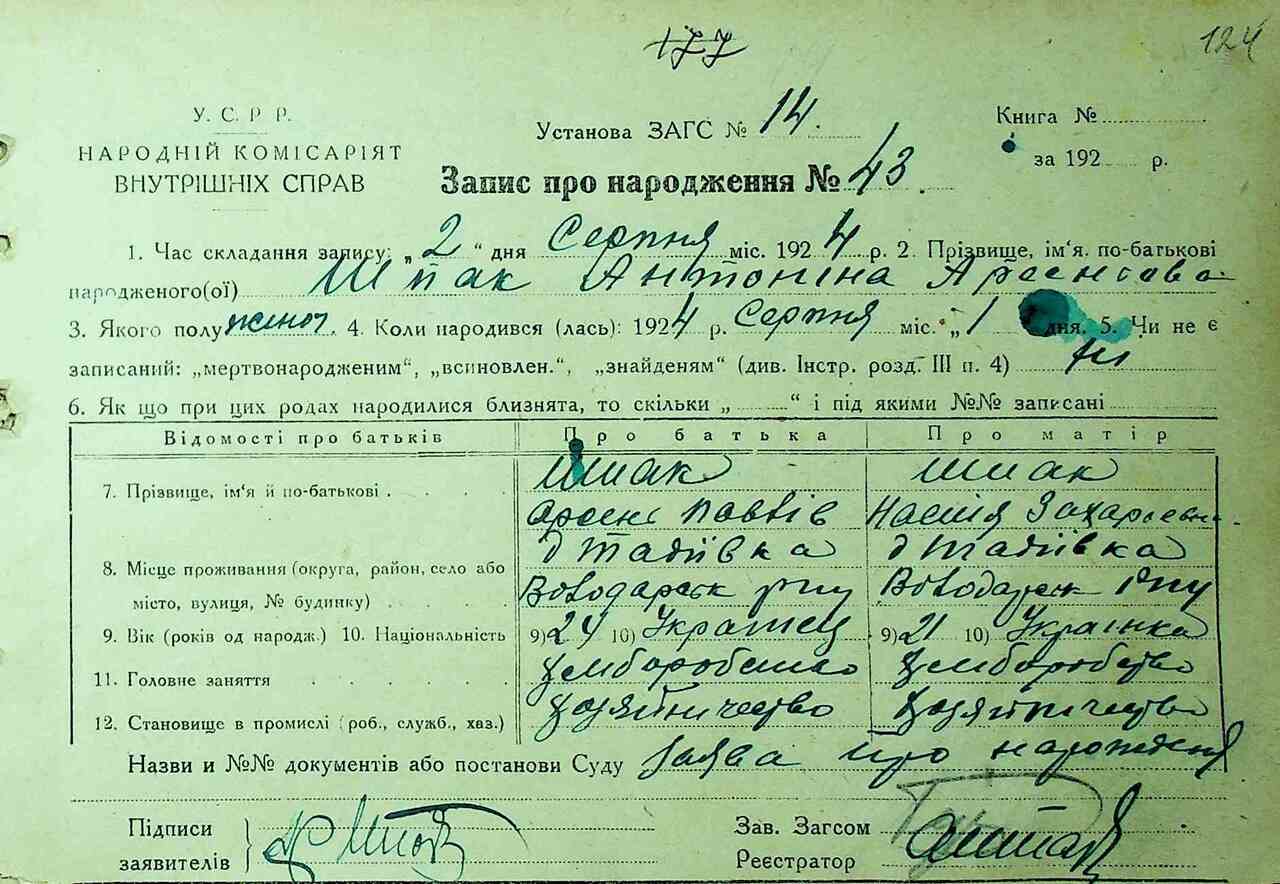 177
124
У. С. Р Р.
НАРОДНІЙ КОМІСАРІЯТ
ВНУТРІШНІХ СПРАВ
Установа ЗАГС № 14.
Запис про народження № 43.
Книга №
за 192 р.
1. Час складання запису: „2“ дня Серпня міс. 1924 р. 2. Прізвище, ім'я. по-батькові
народженого(ої) Шпак Антоніна Арсенгова
3. Якого полу жіноч. 4. Коли народився (лась): 1924 р. Серпня міс. „1 дня. 5. Чи не є
записаний: „мертвонародженим“, „всиновлен.“, „знайденям“ (див. Інстр. розд. III п. 4) ні
6. Як що при цих родах народилися близнята, то скільки „ “ і під якими №№ записані
Відомості про батьків Про батька Про матір
7. Прізвище, ім'я й по-батькові Шпак Шпак
Арсен Павлів Настія Захарьевн
8. Місце проживання (округа, район, село або д Тадіївка д Тадіївка
місто, вулиця, № будинку) Володарськ рну Володарськ рну
9. Вік (років од народж.) 10. Національність 9) 24 10) Украінец 9) 21 10) Украінка
11. Головне заняття хемборобство хемборобство
12. Становище в промислі (роб., служб., хаз.) хозяйничество хозяйничество
Назви и №№ документів або постанови Суду Заява про нарождення
Підписи
заявителів
Зав. Загсом
Реєстратор